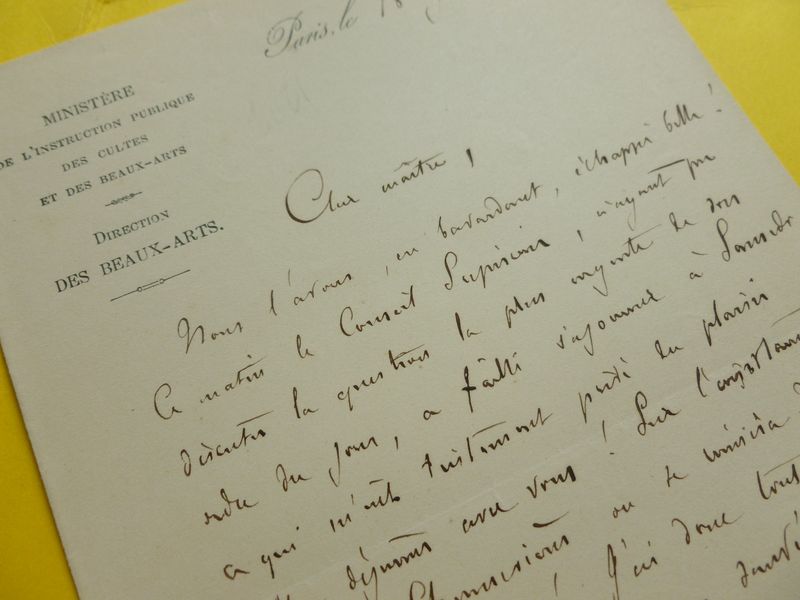 Paris, le 18
MINISTÈRE
DE L'INSTRUCTION PUBLIQUE
DES CULTES
ET DES BEAUX-ARTS
DIRECTION
DES BEAUX-ARTS.
Cher maître,
Nous l'avons, en bavardant, échappé belle!
Ce matin le Conseil Supérieur, n'ayant pu
discuter la question la plus urgente de son
ordre du jour, a failli s'ajourner à Samedi
ce qui m'eût tristement privé du plaisir
déjeuner avec vous! Sur l'
ou se
! J'ai donc tout